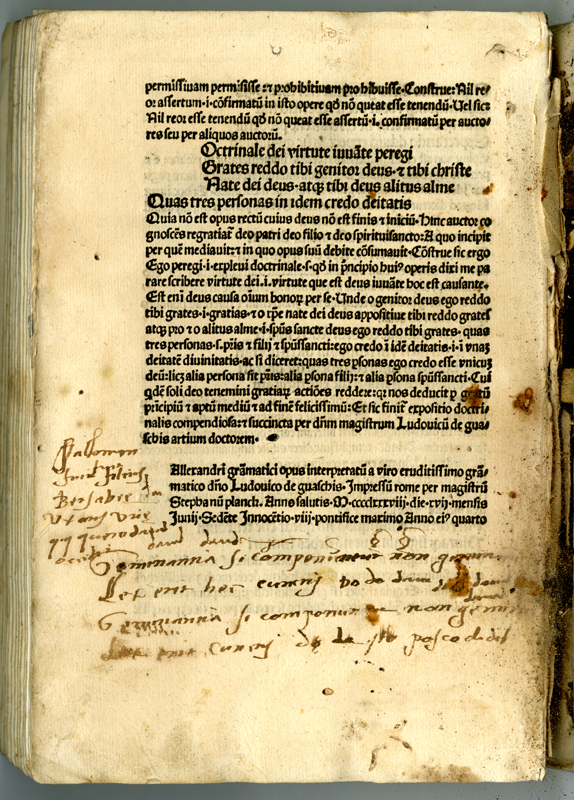 permissivam permisisse ⁊ prohibitivam prohibuisse. Construe: Nil re⸗
or assertum .i. cōfirmatū in isto opere qd̄ nō queat esse tenendū. Uel sic:
Nil reor esse tenendū qd̄ nō queat esse assertū .i. confirmatū per aucto⸗
res seu per aliquos auctorū.
Octrinale dei virtute iuuāte peregi
Grates reddo tibi genitor deus. ⁊ tibi christe
Nate dei deus. atqꝫ tibi deus alitus alme
Quas tres personas in idem credo deitatis
Quia nō est opus rectū cuius deus nō est finis ⁊ iniciū. Hinc auctor co
gnoscēs regratiat̄ deo patri deo filio ⁊ deo spirituisancto: A quo incipit
per quē mediauit: ⁊ in quo opus suū debite cōsumauit. Cōstrue sic ergo
Ego peregi .i. expleui doctrinale .s. qd̄ in pncipio huiꝰ operis dixi me pa
rare scribere virtute dei .i. virtute que est deus iuuāte hoc est causante.
Est eni deus causa oīum bonoꝝ per se. Unde o genitor deus ego reddo
tibi grates .i. gratias. ⁊ o xp̄e nate dei deus appositiue tibi reddo grates
atqꝫ pro ⁊ o alitus alme .i. spūs sancte deus ego reddo tibi grates. quas
tres personas .s. pr̄is ⁊ filij ⁊ spūssancti: ego credo ī idē deitatis .i. ī vnaꝫ
deitatē diuinitatis. ac si diceret: quas tres psonas ego credo esse vnicuꝫ
deū: licꝫ alia persona sit pr̄is: alia psona filij: ⁊ alia psona spūssancti. Cui
qdē soli deo tenemini gratiaꝝ actiōes reddere: qr nos deducit p gratū
pricipiū ⁊ aptū mediū ⁊ ad finē felicissimū: Et sic finit expositio doctri⸗
nalis compendiosa: ⁊ succincta per dn̄m magistrum Ludouicū de gua⸗
schis artium doctorem.
Allexandri grāmatici opus interpretatū a viro eruditissimo grā⸗
matico dn̄o Ludouico de guaschis. Impressū rome per magistrū
Stephanū planck. Anno salutis .M.cccclxxxviij. die .xvj. mensis
Junij. Sedēte Innocētio .viij. pontifice maximo Anno eiꝰ quarto
Sallomon
filius
Bersabe
david david
Germannia si componuntur non
Let erit hec cunctis do
Germannia si componuntur non
Let erit cunctis posco dedit